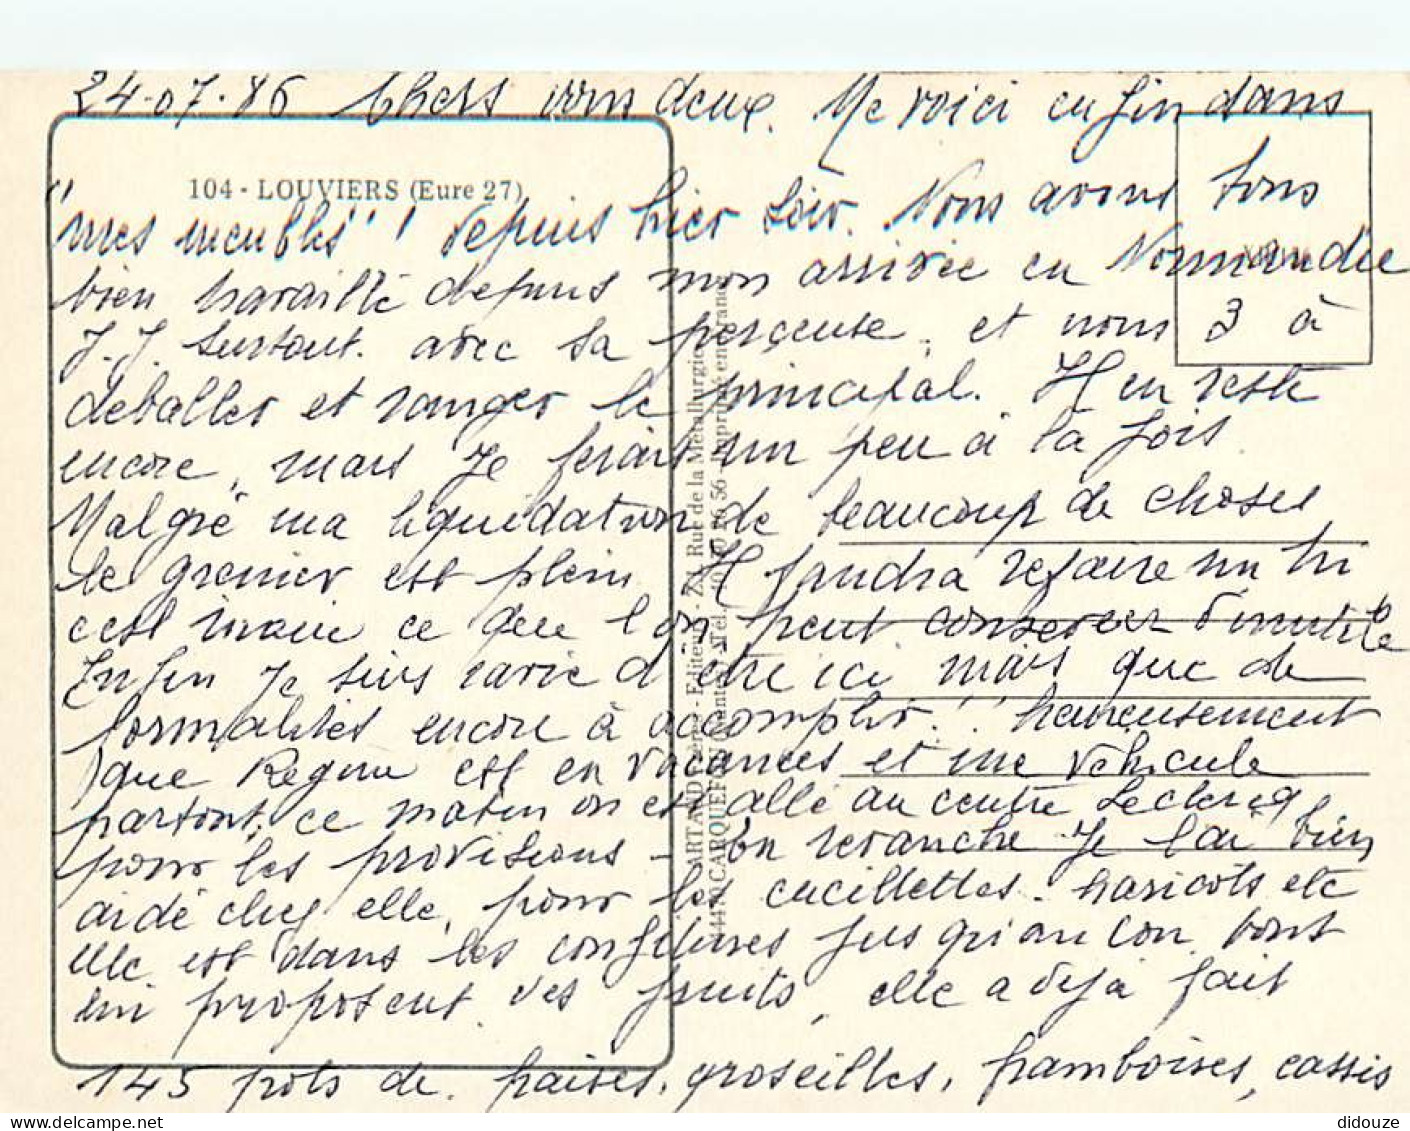 24-07-86 Chers vous deux. Me voici enfin dans
104 - LOUVIERS (Eure 27)
"mes meubles" ! depuis hier soir. Nous avons tous
bien travaillé depuis mon arrivée en Normandie
J.J. surtout. avec sa perceuse, et nous 3 à
déballer et ranger le principal. Il en reste
encore, mais je ferais un peu à la fois.
Malgré ma liquidation de beaucoup de choses
le grenier est plein. Il faudra refaire un tri
c'est inouie ce que l'on peut conserver d'inutile
Enfin je suis ravie d'être ici mais que de
formalités encore à accomplir !! heureusement
que Régine est en vacances et me véhicule
partout, ce matin on est allé au centre Leclercq
pour les provisions - En revanche je l'ai bien
aidé chez elle, pour les cueillettes. haricots etc
elle est dans les confitures jusqu'au cou. tout
lui proposent des fruits, elle a déjà fait
145 pots de. fraises, groseilles, framboises, cassis
ARTAUD Frères - Editeurs - Z.I. Rue de la Métallurgie
44470 CARQUEFOU (Nantes) - Tél. 56 - Imprimé en France
didouze